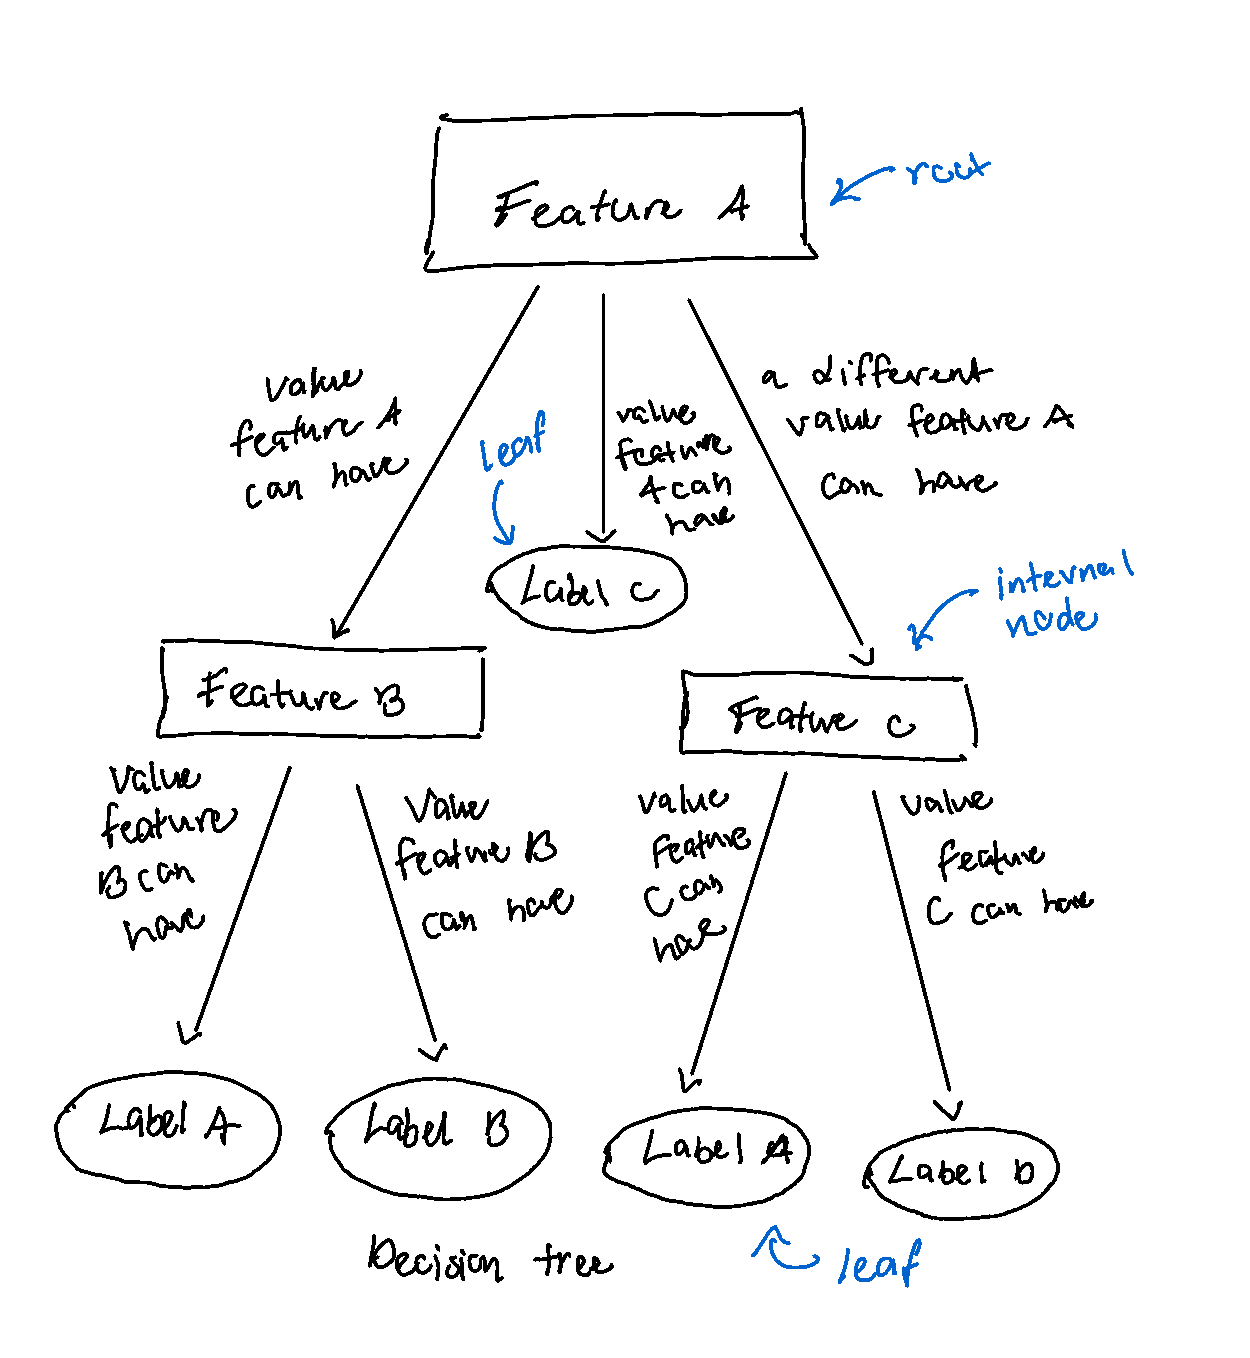 Feature A
root
value
feature A
can have
leaf
value
feature
A can
have
a different
value feature A
can have
Label C
internal
node
Feature B
Feature C
value
feature
B can
have
value
feature B
can have
value
feature
C can
have
value
feature
C can have
Label A
Label B
Label A
Label D
Decision tree
leaf